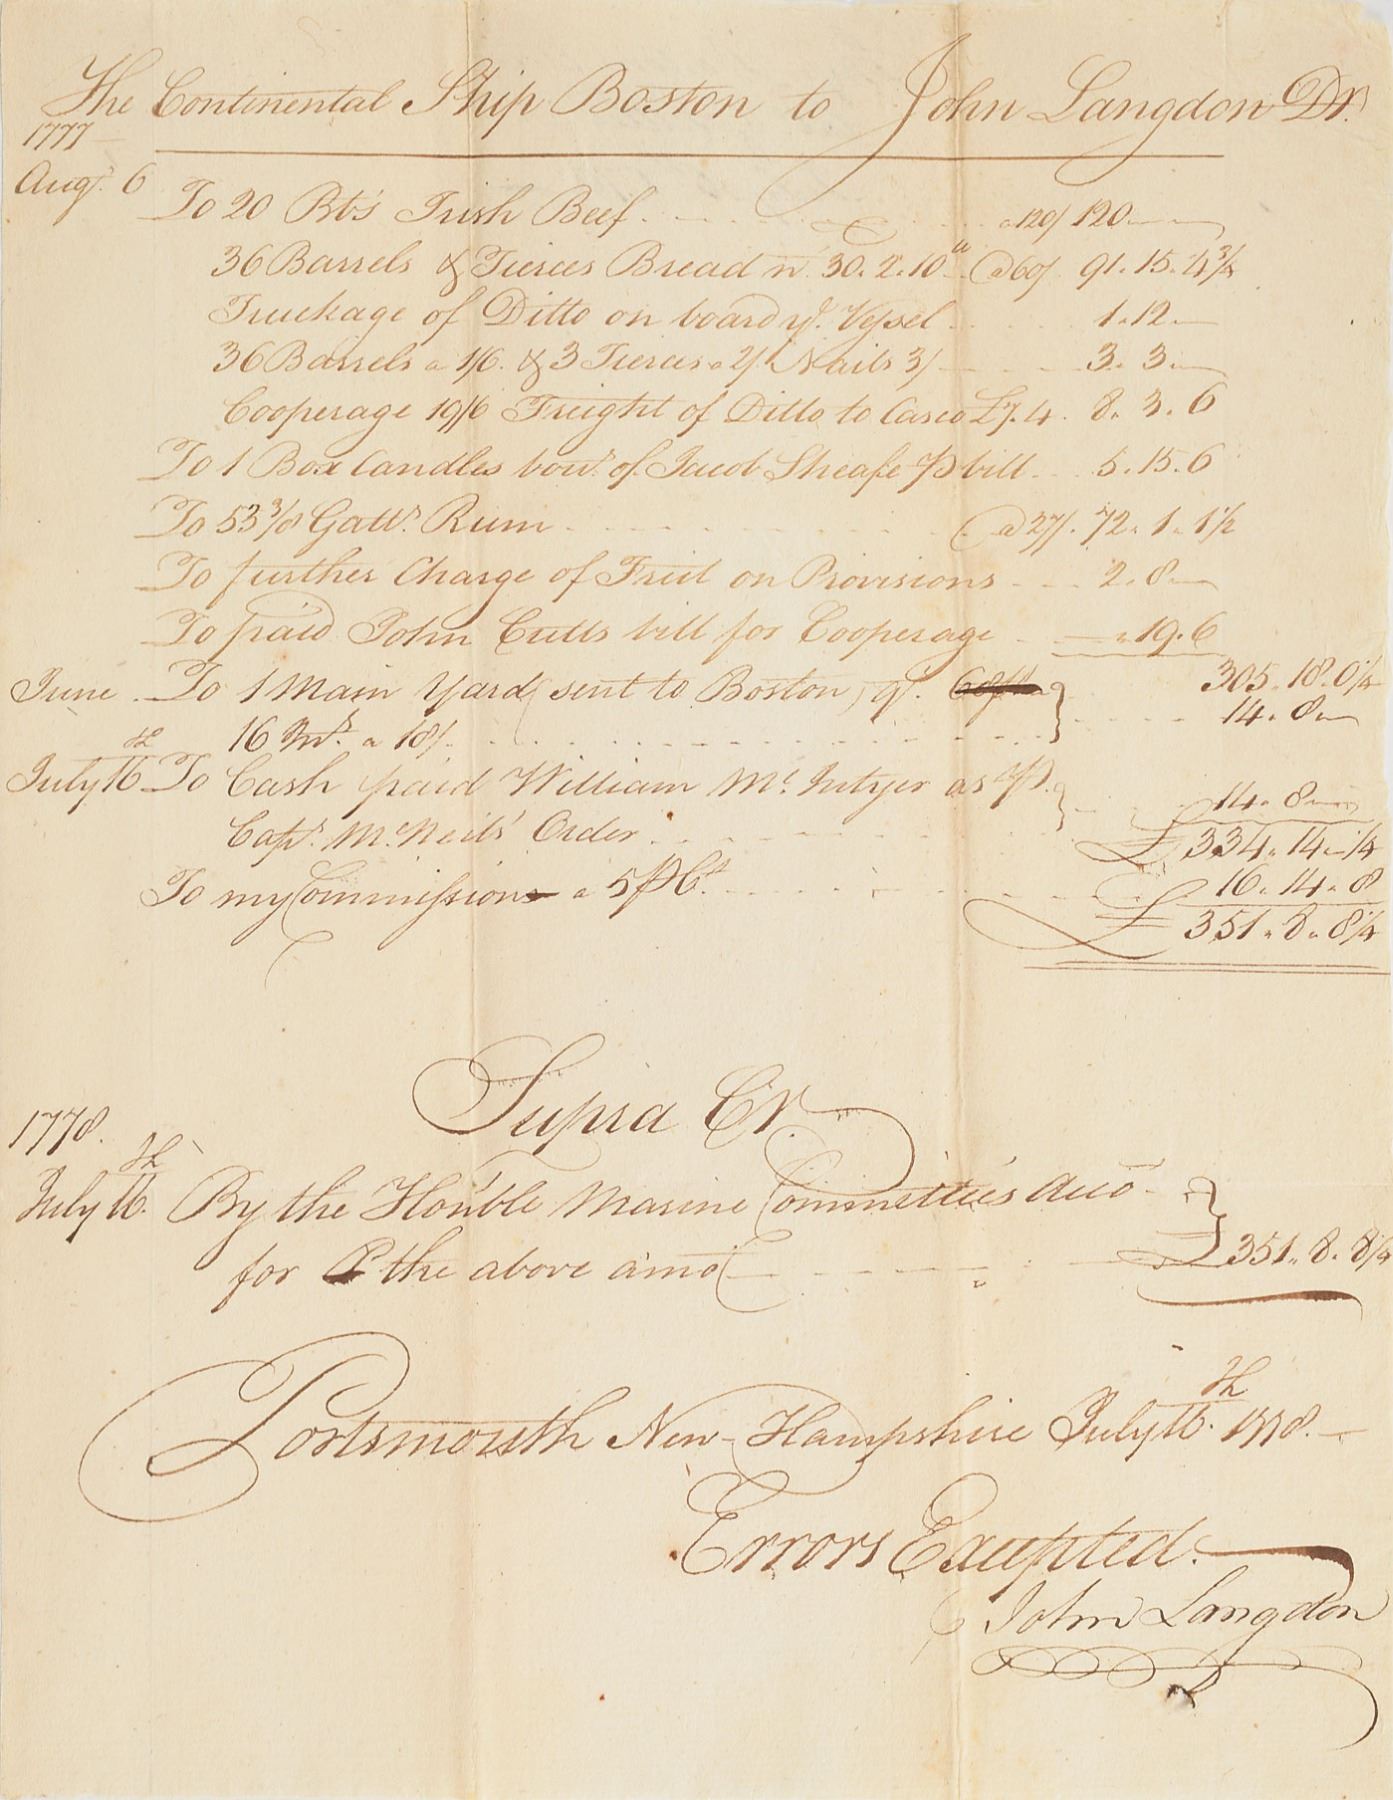 The Continental Ship Boston to John Langdon Dr.
1777
Augt. 6 To 20 Bbs Irish Beef a 120/ 120.
36 Barrels & Tierces Bread wt. 30.2.10 lb @ 60/ 91.15.4 3/4
Truckage of Ditto on board ye. Vessel 1.12.
36 Barrels a 1/6. & 3 Tierces a 2/ Nails 3/ 3.3.
Cooperage 19/6 Freight of Ditto to Casco £7.4. 8.3.6
To 1 Box Candles bout. of Jacob Sheafe ⅌ bill 5.15.6
To 53 3/8 Galls. Rum @ 27/. 72.1.1 1/2
To further Charge of Freit on Provisions 2.8
To paid John Cutts bill for Cooperage 19.6
305.18.0 1/4
June To 1 Main Yard (sent to Boston) qt.
16 Ins. a 18/. 14.8
July 16th To Cash paid William Mc. Intyer as ⅌.
Capt. McNeils' Order 14.8
£ 334.14. 1/4
To my Commission a 5 ⅌ Ct. 16.14.8
£ 351.8.8 1/4
Supra Cr.
1778.
July 16th. By the Hon'ble Marine Committee's Acco
for the above amo £ 351.8.8 1/4
Portsmouth New-Hampshire July 16th. 1778.
Errors Excepted.
John Langdon